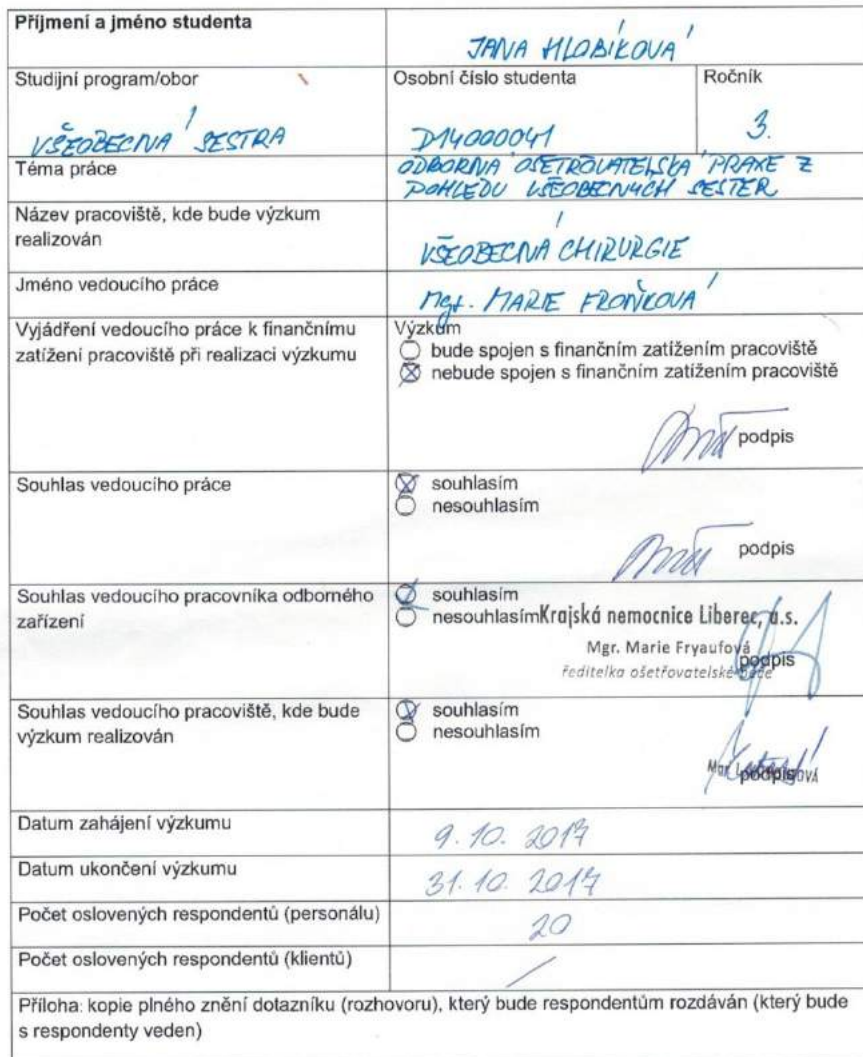 Příjmení a jméno studenta
JANA HLOBÍKOVÁ
Studijní program/obor
Osobní číslo studenta
Ročník
VŠEOBECNÁ SESTRA
D14000041
3.
Téma práce
ODBORNÁ OŠETŘOVATELSKÁ PRAXE Z
POHLEDU VŠEOBECNÝCH SESTER
Název pracoviště, kde bude výzkum
realizován
VŠEOBECNÁ CHIRURGIE
Jméno vedoucího práce
Mgr. MARIE FROŇKOVÁ
Vyjádření vedoucího práce k finančnímu
zatížení pracoviště při realizaci výzkumu
Výzkum
bude spojen s finančním zatížením pracoviště
nebude spojen s finančním zatížením pracoviště
podpis
Souhlas vedoucího práce
souhlasím
nesouhlasím
podpis
Souhlas vedoucího pracovníka odborného
zařízení
souhlasím
nesouhlasím
Krajská nemocnice Liberec, a.s.
Mgr. Marie Fryaufová
podpis
ředitelka ošetřovatelské péče
Souhlas vedoucího pracoviště, kde bude
výzkum realizován
souhlasím
nesouhlasím
podpis
Datum zahájení výzkumu
9. 10. 2017
Datum ukončení výzkumu
31. 10. 2017
Počet oslovených respondentů (personálu)
20
Počet oslovených respondentů (klientů)
/
Příloha: kopie plného znění dotazníku (rozhovoru), který bude respondentům rozdáván (který bude
s respondenty veden)